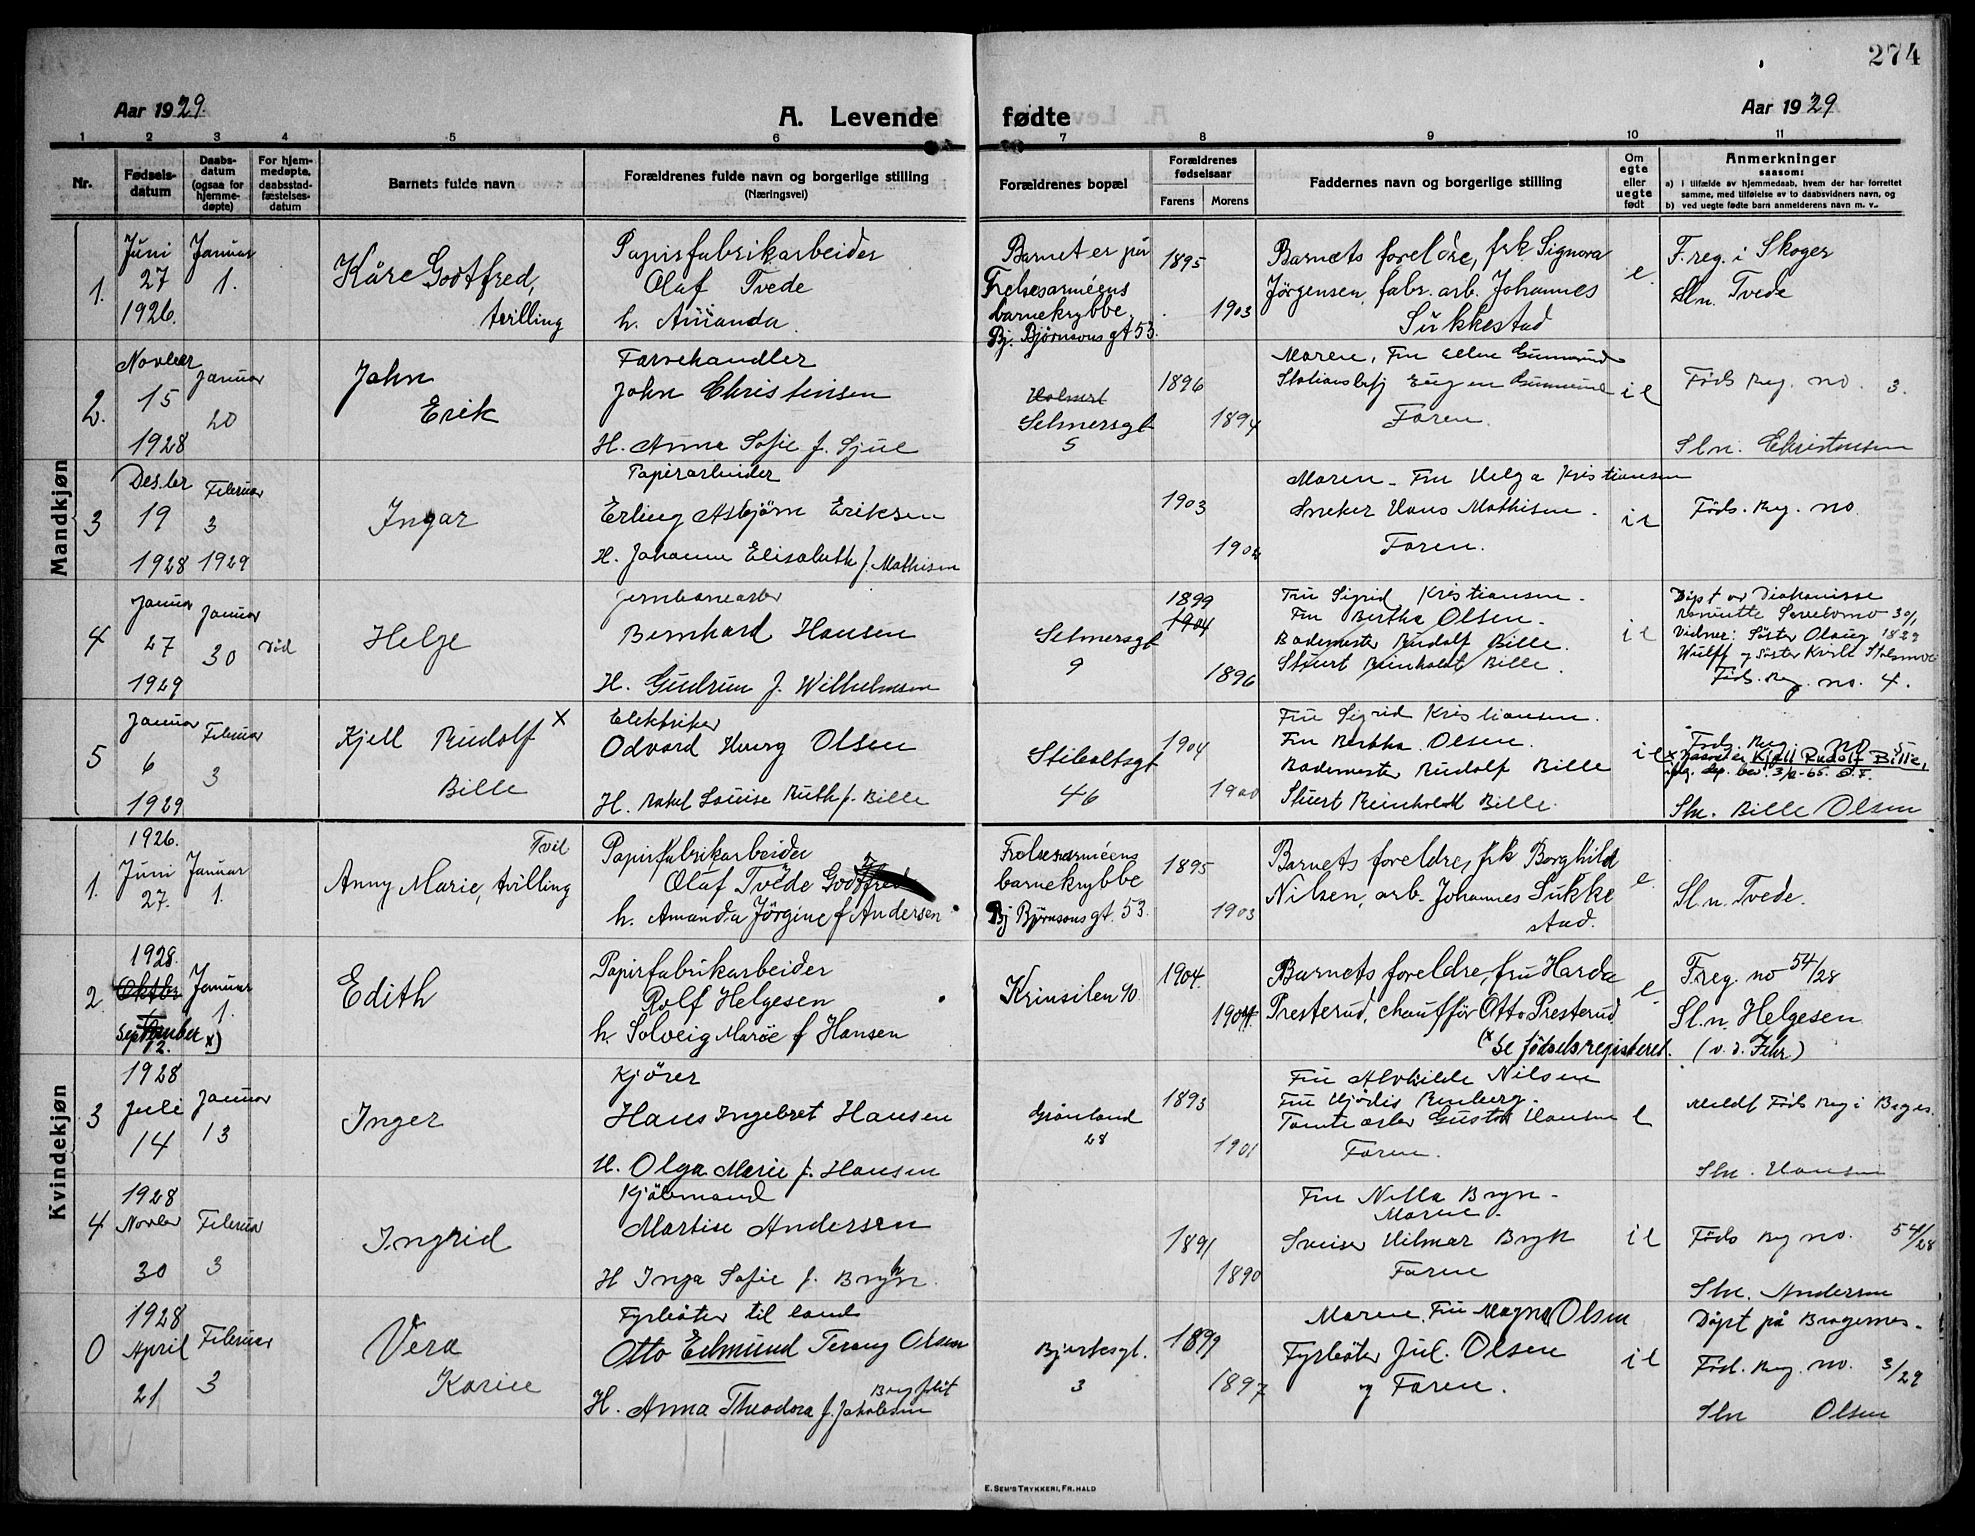 274
Aar 1929.
A. Levende fødte
Aar 1929
1 2 3 4 5 6 7 8 9 10 11
Nr.
Fødsels-
datum
Daabs-
datum
(ogsaa for
hjemme-
døpte)
For hjem-
medøpte,
daabsstad-
fæstelses-
datum
Barnets fulde navn
Forældrenes fulde navn og borgerlige stilling
(Næringsvei)
Forældrenes bopæl
Forældrenes
fødselsaar
Farens Morens
Faddernes navn og borgerlige stilling
Om
egte
eller
uegte
født
Anmerkninger
saasom:
a) i tilfælde av hjemmedaab, hvem der har forrettet
samme, med tilføielse av to daabsvidners navn, og
b) ved uegte fødte barn anmelderens navn m. v.
Mandkjøn
1.
Juni
27
1926.
Januar
1.
Kåre Godtfred,
tvilling
Papirfabrikarbeider
Olaf Tvede
h. Amanda.
Barnet er på
Frelsesarméens
barnekrybbe,
Bj. Bjørnsons gt 53.
1895
1903
Barnets foreldre, frk Signora
Jørgensen, fabr. arb. Johannes
Sukkestad
e.
F. reg. i Skoger
Sln. Tvede
2.
Novber
15
1928
Januar
20
John
Erik
Farvehandler
John Christensen
H. Anna Sofie f. Sjul
Selmersgt
5
1896
1894
Moren, Fru Ellen
Stationsbetj Eugen
Faren.
il
Føds Reg. no. 3.
Sln. Christensen
3
Des.br
19
1928
Februar
3
1929
Ingar
Papirarbeider
Erling Asbjørn Eriksen
H. Johanne Elisabeth f. Mathisen
1903
Moren - Fru Helga Kristiansen
Sneker Hans Mathisen.
Faren.
il
Føds. Reg. no
4
Januar
27
1929
Januar
30
Død
Helge
Jernbanearb
Bernhard Hansen
H. Gudrun f. Wilhelmsen
Selmersgt
9
1899
1904
1896
Fru Sigrid Kristiansen.
Fru Bertha Olsen.
Bademester Rudolf Bille.
Stuert Reinholdt Bille.
il
Døpt av Diakonisse
30/1
Vidner: Søster Olaug 1929
Wulff og Søster
Føds. Reg. no. 4.
5
Januar
6
1929
Februar
3
Kjell Rudolf x
Bille
Elektriker
Odvard Olsen
H. Rakel Louise Ruth f. Bille
Stiboltsgt
46
1904
1900
Fru Sigrid Kristiansen.
Fru Bertha Olsen.
Bademester Rudolf Bille
Stuert Reinholdt Bille.
il
Føds. Reg. no 5
x Navnet er Kjell Rudolf Bille,
iflg. dep. bev. 3/2-65. O.F.
Sln. Bille Olsen
Kvindekjøn
1.
1926.
Juni
27.
Januar
1.
Tvil
Anny Marie, tvilling
Papirfabrikarbeider
Olaf Tvede Godtfred
h. Amanda Jørgine f Andersen
Frelsesarméens
barnekrybbe
Bj Bjørnsons gt. 53.
1895
1903
Barnets foreldre, frk Borghild
Nilsen, arb. Johannes Sukke
stad.
e.
Sl.n. Tvede.
2
1928.
Oktbr
September x)
12.
Januar
1.
Edith
Papirfabrikarbeider
Rolf Helgesen
h. Solveig Marie f Hansen
Krinsilen 40
1904.
1904.
Barnets foreldre, fru Harda
Presterud, chauffør Otto Presterud
(x se fødselsregisteret.
e.
F reg. no 54/28
Sl.n. Helgesen
(v. d. Fehr)
3
1928
Juli
14
Januar
13
Inger
Kjører
Hans Ingebret Hansen
H. Olga Marie f. Hansen
Grønland
28
1893
1901
Fru Alvhilde Nilsen
Fru Hjødis Renberg.
Tomtearber Gustav Hansen
Faren.
e
Meldt Føds Reg i Brages.
Sln. Hansen
4
1928
Novbr
30
Februar
3
Ingrid
Kjøbmand
Martin Andersen
H Inga Sofie f. Bryhn.
1891
1890
Fru Nilla Bryn -
Moren.
Sveiser Hilmar Bryn
Faren
il
Føds Reg no. 54/28
Sln. Andersen
0
1928
April
21
Februar
3
Vera
Karin
Fyrbøter til land
Otto Edmund Terny Olsen
H. Anna Theodora f. Jakobsen
Bjerkesgt.
3
1899
1897
Moren. Fru Magna Olsen
Fyrbøter Jul. Olsen
og Faren.
il
Døpt på Bragernes.
Fød. Reg. no. 3/29
Sln Olsen
E. SEM'S TRYKKERI, FR. HALD